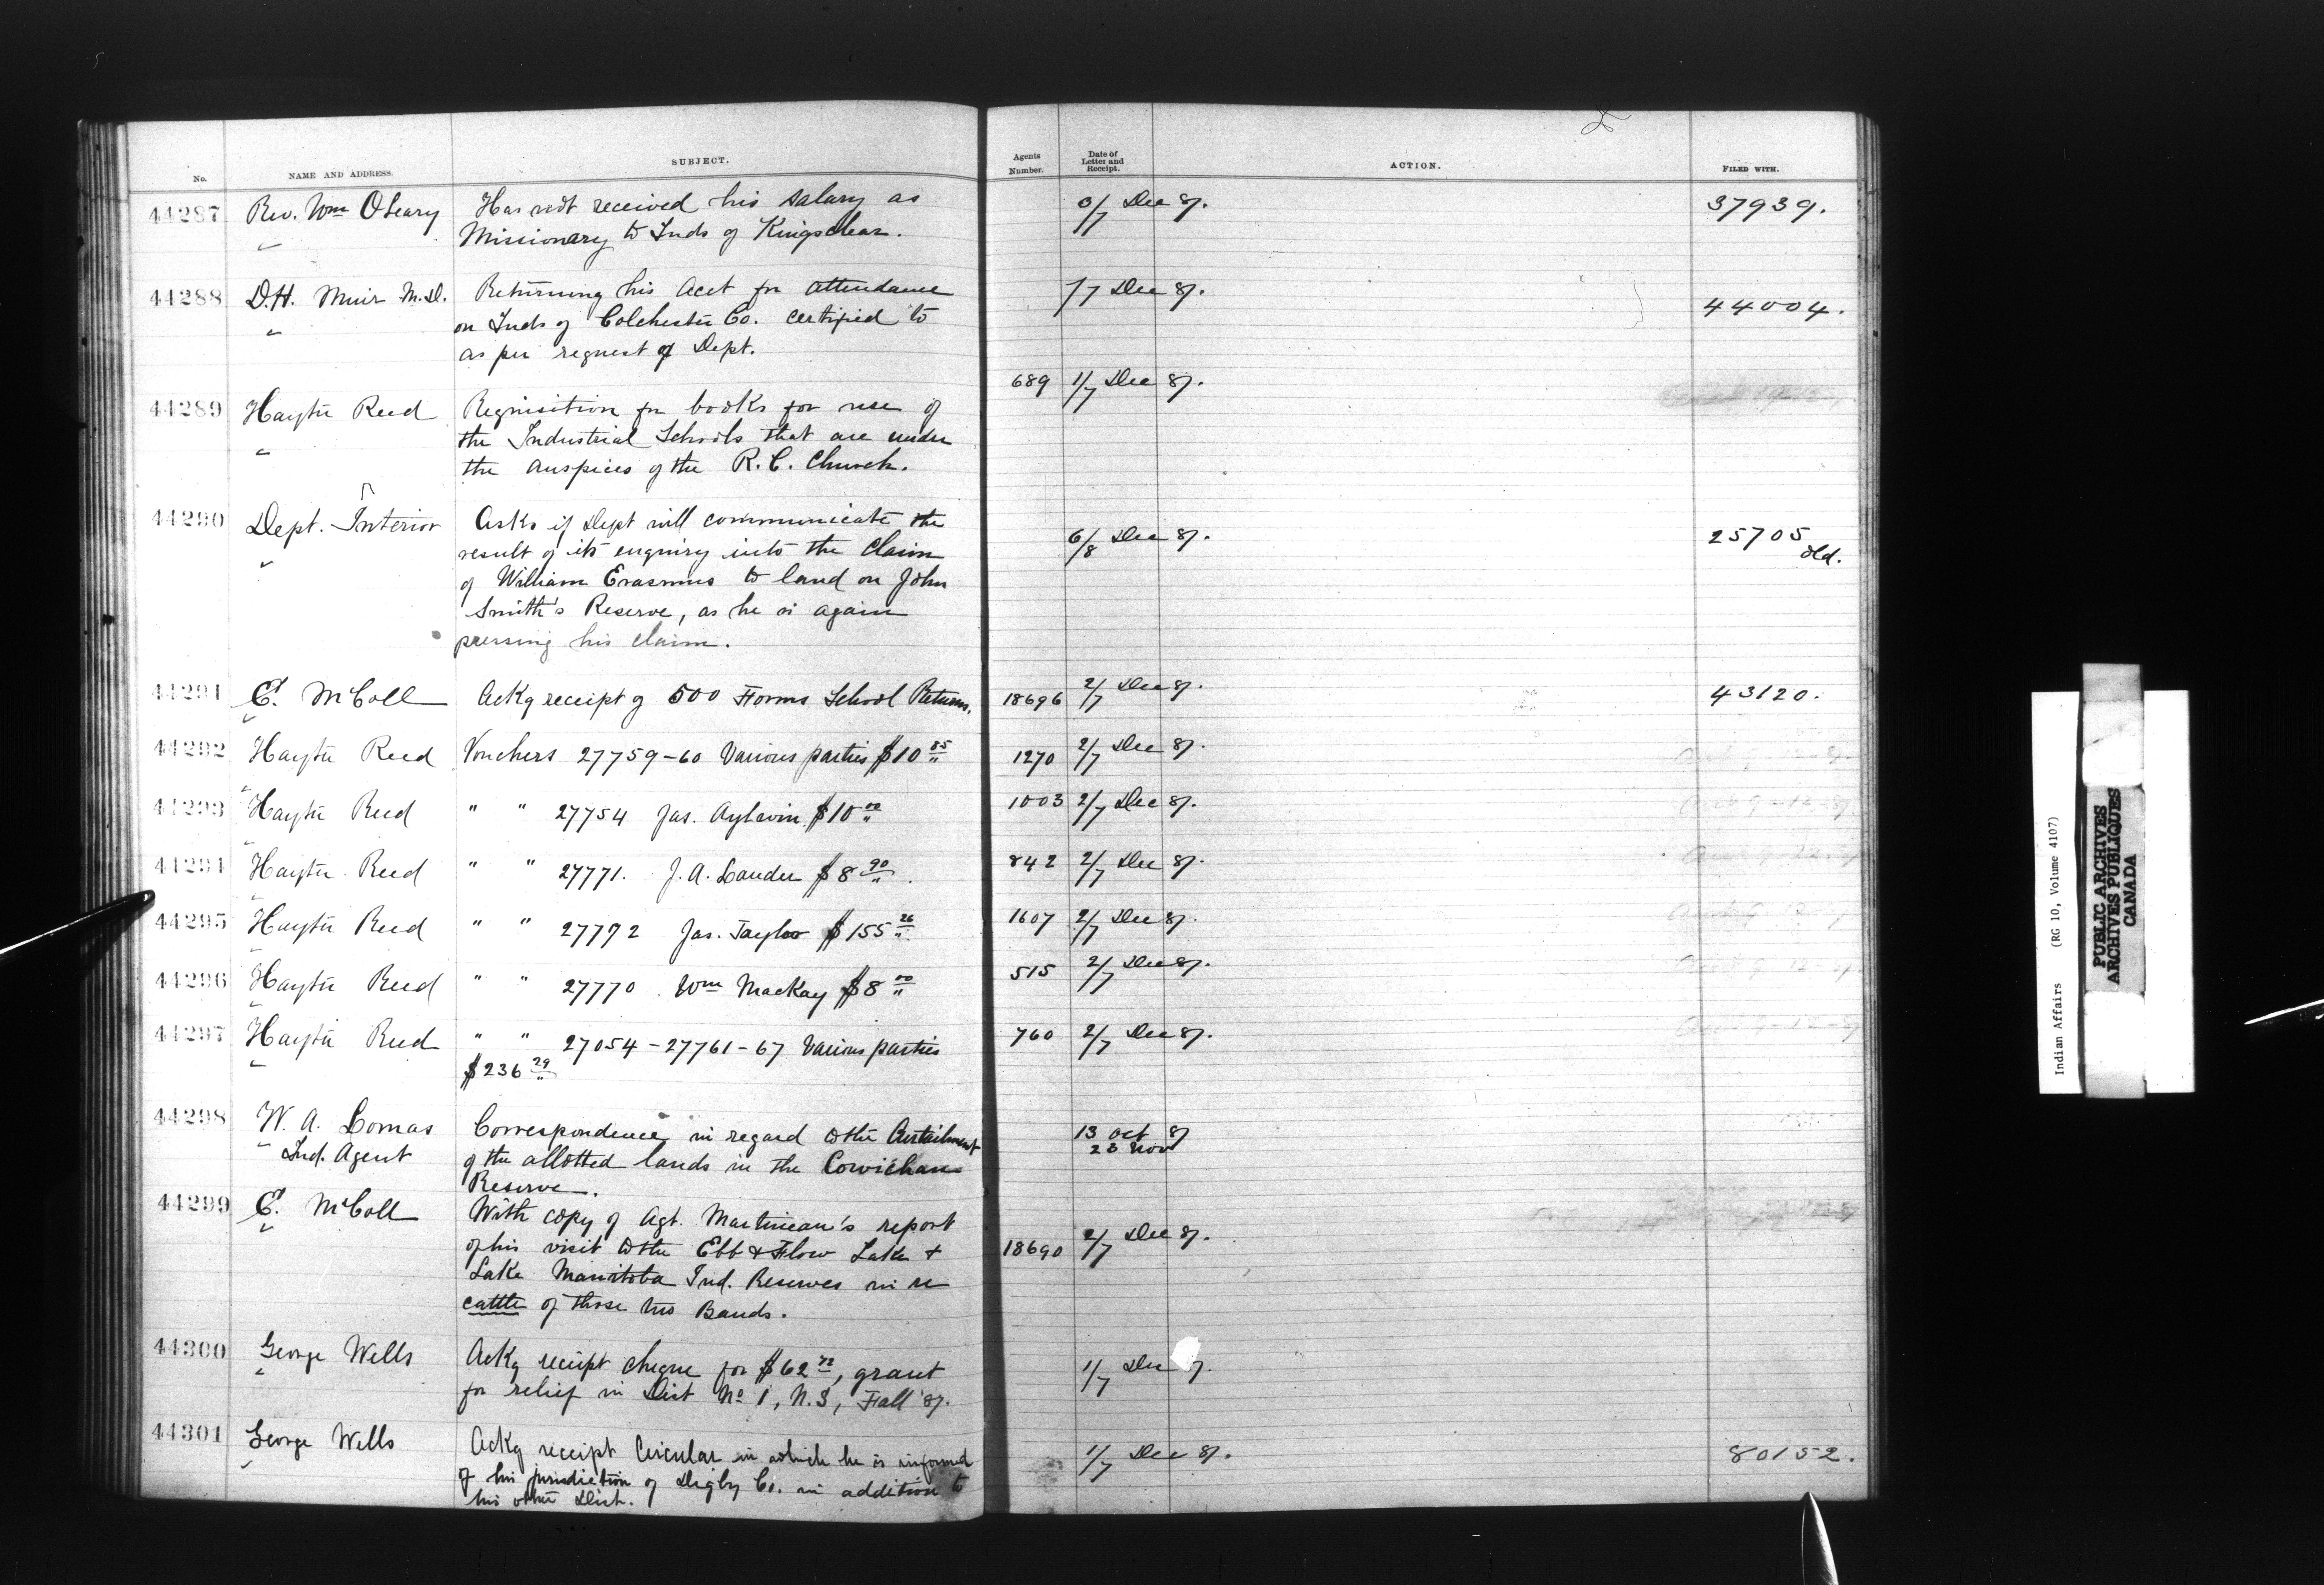 No. NAME AND ADDRESS. SUBJECT. Agents Number. Date of Letter and Receipt. ACTION. FILED WITH.
44287 Rev. Wm O'Leary Has not received his salary as 3/7 Dec 87. 37939.
Missionary to Inds of Kingsclear.
44288 D.H. Muir M.D. Returning his Acct for attendance /7 Dec 87. 44004.
on Inds of Colchester Co. certified to
as per request of Dept.
689 1/7 Dec 87.
44289 Hayter Reed Requisition for books for use of
the Industrial Schools that are under
the auspices of the R.C. Church.
44290 Dept. Interior Asks if Dept will communicate the 6/8 Dec 87. 25705 old.
result of its enquiry into the claim
of William Erasmus to land on John
Smith's Reserve, as he is again
pressing his claim.
44291 E. McColl Ackg receipt of 500 Forms School Returns. 18696 2/7 Dec 87. 43120.
44292 Hayter Reed Vouchers 27759-60 Various parties $10 85 1270 2/7 Dec 87.
44293 Hayter Reed " " 27754 Jas. Aylwin $10 00 1003 2/7 Dec 87.
44294 Hayter Reed " " 27771. J. A. Lauder $8 90. 842 2/7 Dec 87.
44295 Hayter Reed " " 27772 Jas. Taylor $155 26 1607 2/7 Dec 87.
44296 Hayter Reed " " 27770 Wm MacKay $8 00 515 2/7 Dec 87.
44297 Hayter Reed " " 27054-27761-67 Various parties 760 2/7 Dec 87.
$236 29
44298 W. A. Lomas Correspondence in regard to the Curtailment 13 Oct 87
Ind. Agent of the allotted lands in the Cowichan 23 Nov
Reserve.
44299 E. McColl With copy of Agt. Martineau's report
of his visit to the Ebb & Flow Lake & 18690 2/7 Dec 87.
Lake Manitoba Ind. Reserves in re
cattle of those two Bands.
44300 George Wells Ackg receipt cheque for $62 72, grant 1/7 Dec 7.
for relief in Dist No 1, N.S, Fall '87.
44301 George Wells Ackg receipt Circular in which he is informed 1/7 Dec 87. 80152.
of his jurisdiction of Digby Co. in addition to
his other Dist.
Indian Affairs (RG 10, Volume 4107)
PUBLIC ARCHIVES
ARCHIVES PUBLIQUES
CANADA